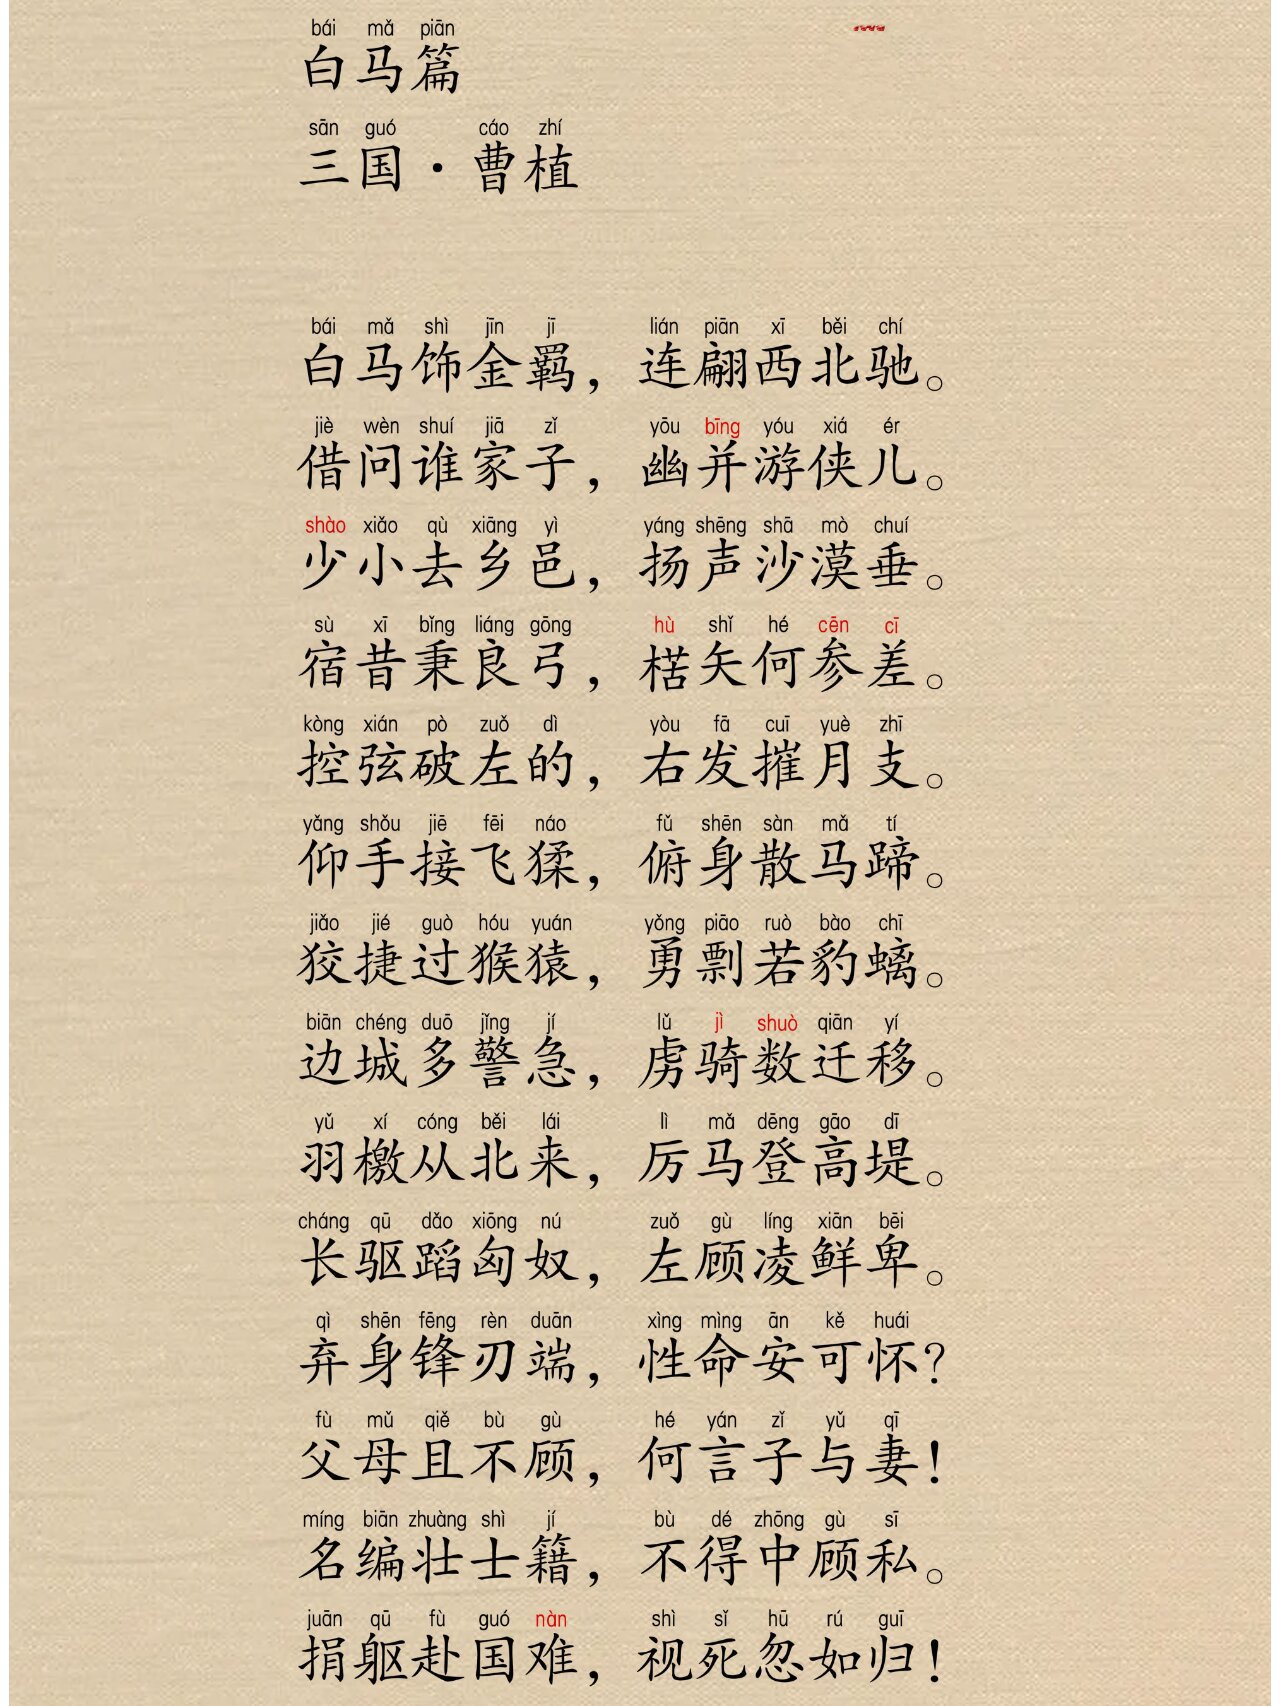 bái mǎ piān
白马篇
sān guó cáo zhí
三国·曹植
bái mǎ shì jīn jī lián piān xī běi chí
白马饰金羁，连翩西北驰。
jiè wèn shuí jiā zǐ yōu bīng yóu xiá ér
借问谁家子，幽并游侠儿。
shào xiǎo qù xiāng yì yáng shēng shā mò chuí
少小去乡邑，扬声沙漠垂。
sù xī bǐng liáng gōng hù shǐ hé cēn cī
宿昔秉良弓，楛矢何参差。
kòng xián pò zuǒ dì yòu fā cuī yuè zhī
控弦破左的，右发摧月支。
yǎng shǒu jiē fēi náo fǔ shēn sàn mǎ tí
仰手接飞猱，俯身散马蹄。
jiǎo jié guò hóu yuán yǒng piāo ruò bào chī
狡捷过猴猿，勇剽若豹螭。
biān chéng duō jǐng jí lǔ jì shuò qiān yí
边城多警急，虏骑数迁移。
yǔ xí cóng běi lái lì mǎ dēng gāo dī
羽檄从北来，厉马登高堤。
cháng qū dǎo xiōng nú zuǒ gù líng xiān bēi
长驱蹈匈奴，左顾凌鲜卑。
qì shēn fēng rèn duān xìng mìng ān kě huái
弃身锋刃端，性命安可怀？
fù mǔ qiě bù gù hé yán zǐ yǔ qī
父母且不顾，何言子与妻！
míng biān zhuàng shì jí bù dé zhōng gù sī
名编壮士籍，不得中顾私。
juān qū fù guó nàn shì sǐ hū rú guī
捐躯赴国难，视死忽如归！